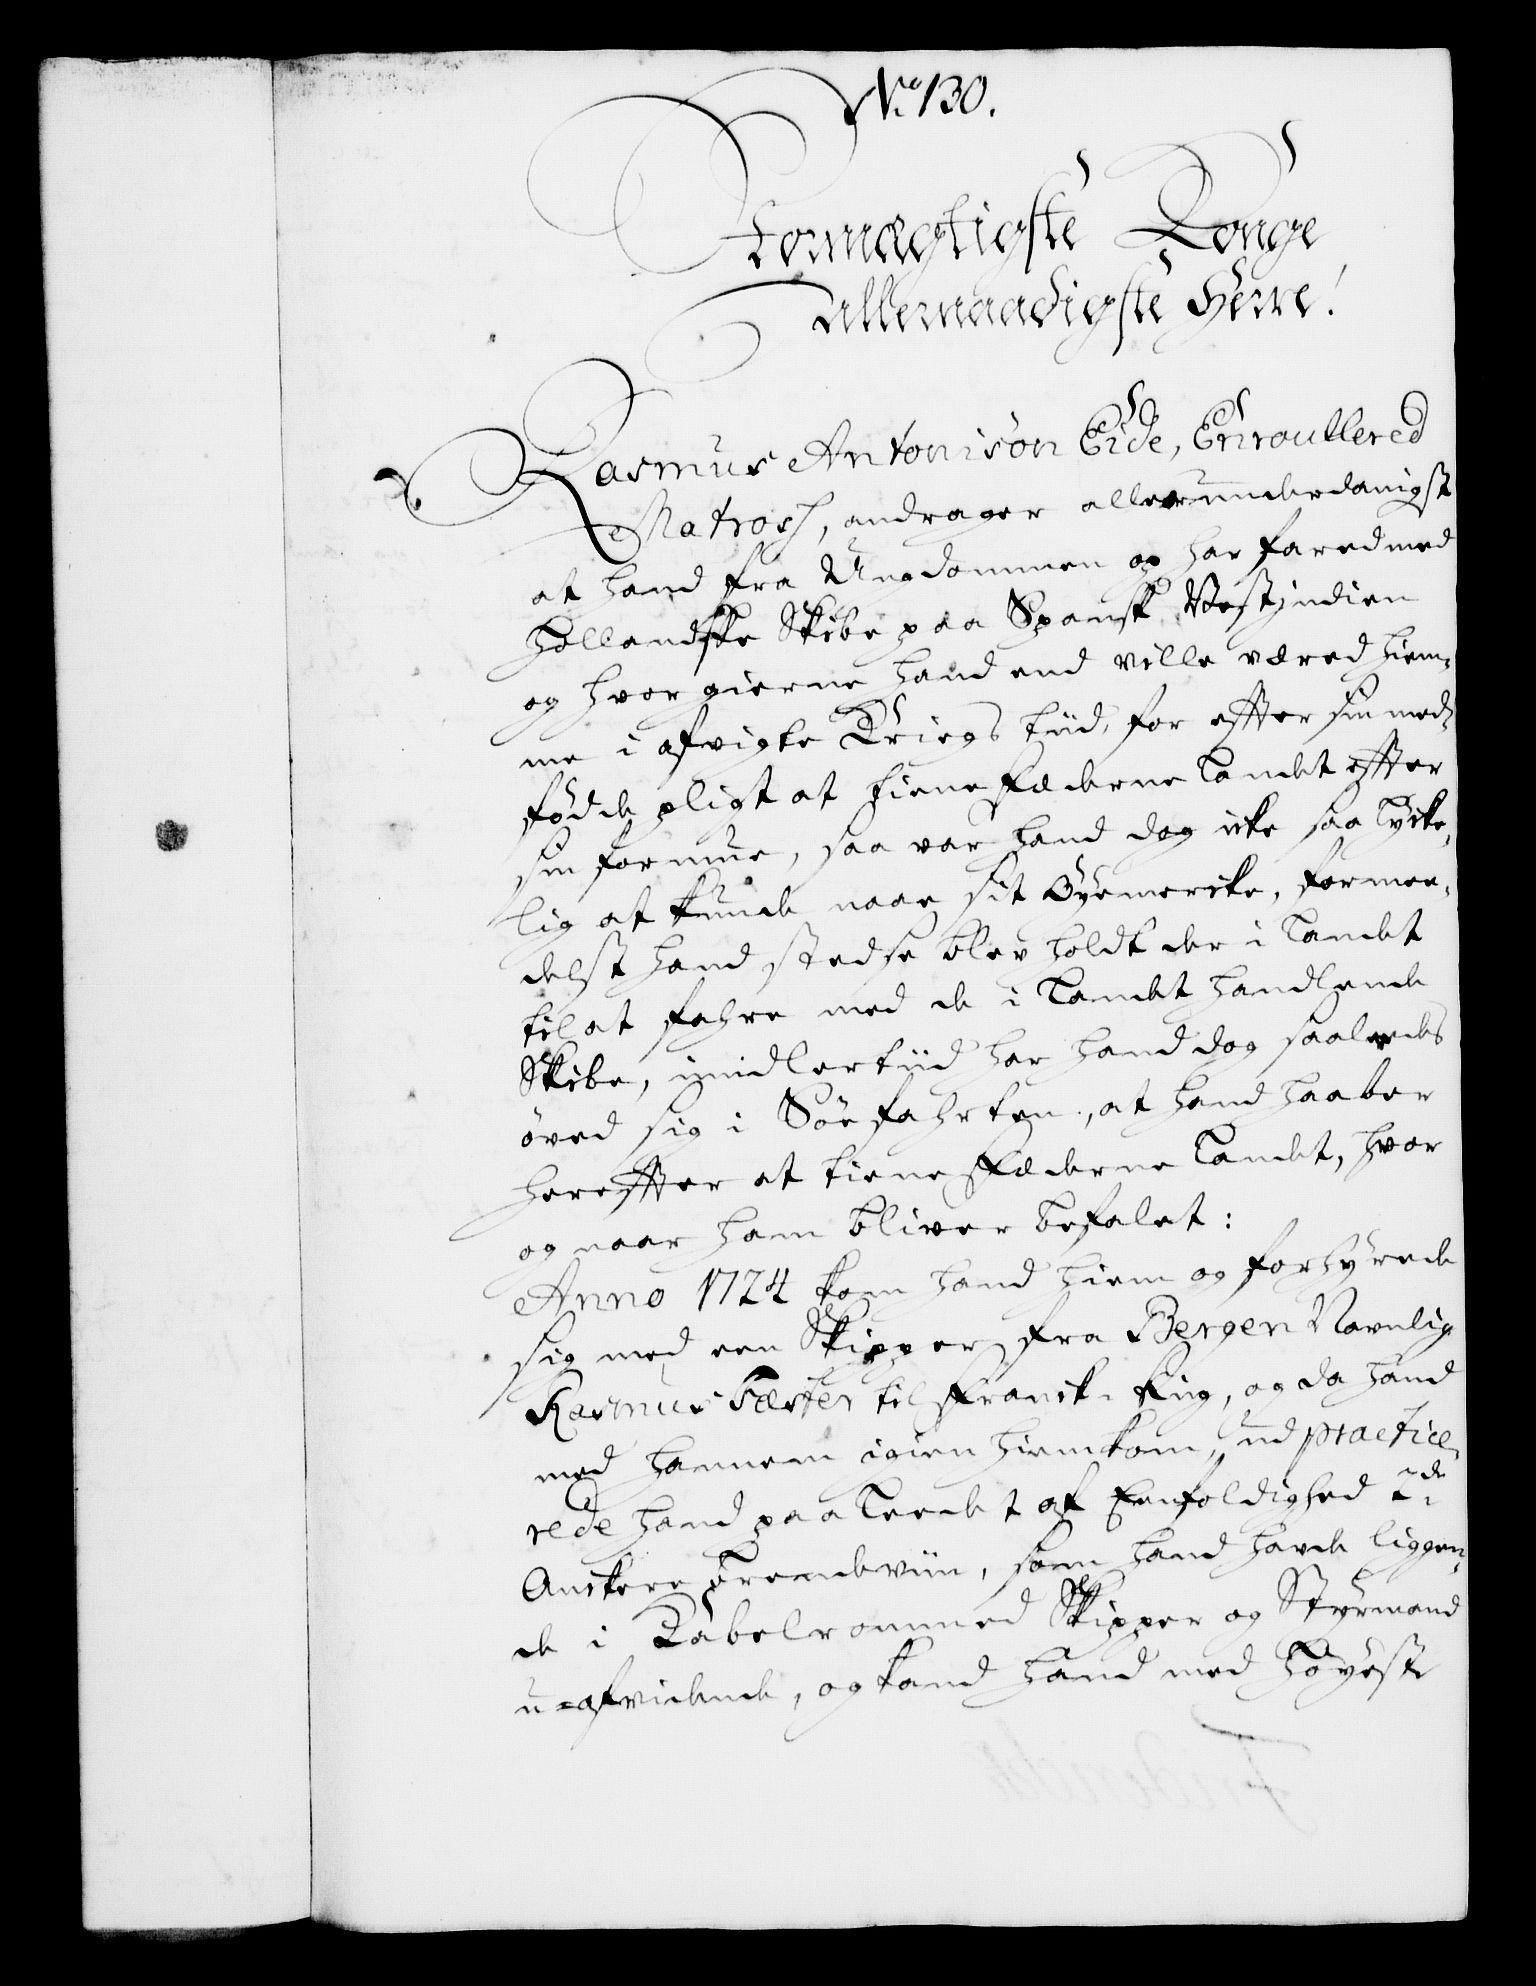 No. 130.
Stormægtigste Konge
allernaadigste Herre!
Rasmus Antonisøn Eide, Enroullered
Matros, andrager allerunderdanigst
at hand fra Ungdommen op har fared med
Hollandske Skibe paa Spansk Vestjndien
og hvor gierne hand end ville væred hiem-
me i afvigte Kriegs tiid, for effter sin med-
fødde pligt at tiene Fæderne Landet effter
sin formue, saa var hand dog icke saa Lycke-
lig at kunde naae sit Øyemercke, formee-
delst hand stedse blev holdt der i Landet
til at fahre med de i Landet handlende
Skibe, imidlertiid har hand dog saaledes
øved sig i Søefahrten, at hand haaber
hereffter at tiene Fæderne Landet, hvor
og naar ham bliver befalet:
Anno 1724 kom hand hiem og forhyrede
sig med een Skipper fra Bergen Navnlig
Rasmus Fæster til Franck-Rig, og da hand
med hannem igien hiemkom, ud practice-
rede hand paa Leedet af Eenfoldighed 2de
Anckere Brendeviin, som hand havde liggen-
de i Kabelrommed Skipper og Styrmand
u-afvidende, og kand hand med høyeste